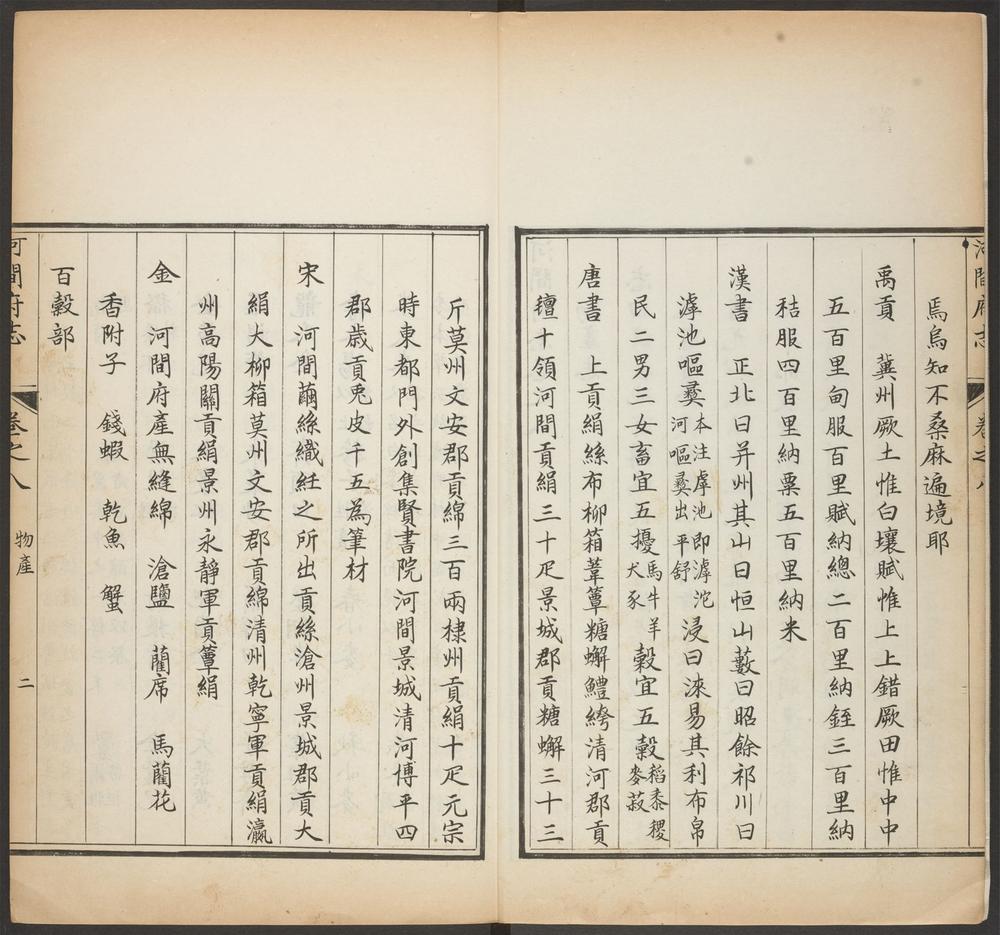 河間府志
卷之八
焉烏知不桑麻遍境耶
禹貢 冀州厥土惟白壤賦惟上上錯厥田惟中中
五百里甸服百里賦納總二百里納銍三百里納
秸服四百里納粟五百里納米
漢書 正北曰并州其山曰恒山藪曰昭餘祁川曰
滹池嘔夷本注虖池即滹沱河嘔夷出平舒浸曰淶易其利布帛
民二男三女畜宜五擾馬牛羊犬豕穀宜五穀稻黍稷麥菽
唐書 上貢絹絲布柳箱葦簟糖蠏鱧鮬清河郡貢
氊十領河間貢絹三十疋景城郡貢糖蠏三十三
斤莫州文安郡貢綿三百兩棣州貢絹十疋元宗
時東都門外創集賢書院河間景城清河博平四
郡歲貢兎皮千五為筆材
宋 河間繭絲織紝之所出貢絲滄州景城郡貢大
絹大柳箱莫州文安郡貢綿清州乾寧軍貢絹瀛
州高陽關貢絹景州永靜軍貢簟絹
金 河間府產無縫綿 滄鹽 藺席 馬藺花
香附子 錢蝦 乾魚 蟹
百穀部
河間府志
卷之八 物產 二